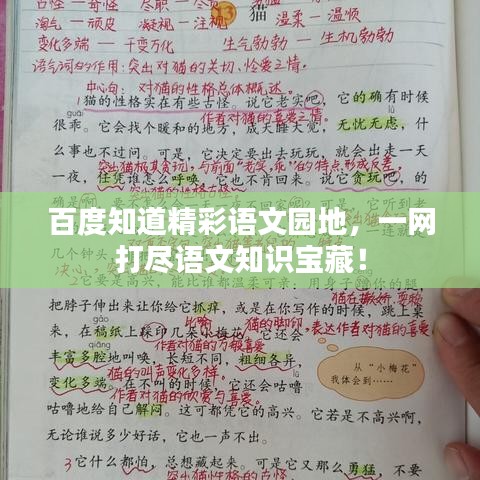 古怪—奇怪 尽职—尽责
淘气—顽皮 凝视—注视 猫 温柔—温顺
变化多端—千变万化 生气勃勃—生机勃勃
语气词的作用：突出对猫的关切、怜爱之情。
中心句：对猫的性格总体概述。
1猫的性格实在有些古怪。说它老实吧，它的确有时候
作者对猫的喜爱之情。
很乖。它会找个暖和的地方，成天睡大觉，无忧无虑，什
么事也不过问。可是，它决定要出去玩玩，就会出走一天
突出猫极其贪玩，与前面“老实、乖”的特点形成反差。
一夜，任凭谁怎么呼唤，它也不肯回来。说它贪玩吧，的
百度知道精彩语文园地，一网
打尽语文知识宝藏！
把脖子伸出来让你给它抓痒，或是在你写作的时候，跳上桌
比喻 猫的脚印
来，在稿纸上踩印几朵小梅花。它还会
表达作者对猫的喜爱
丰富多腔地叫唤，长短不同，粗细各异，
猫的叫声变化多样。
变化多端。在不叫的时候，它还会咕噜
作者对猫的欣赏与喜爱。
咕噜地给自己解闷。这可都凭它的高兴。它若是不高兴啊，
无论谁说多少好话，它也一声不出。
从“小梅花”
我体会到……
3它什么都怕，总想藏起来。可是它又那么勇猛，不要